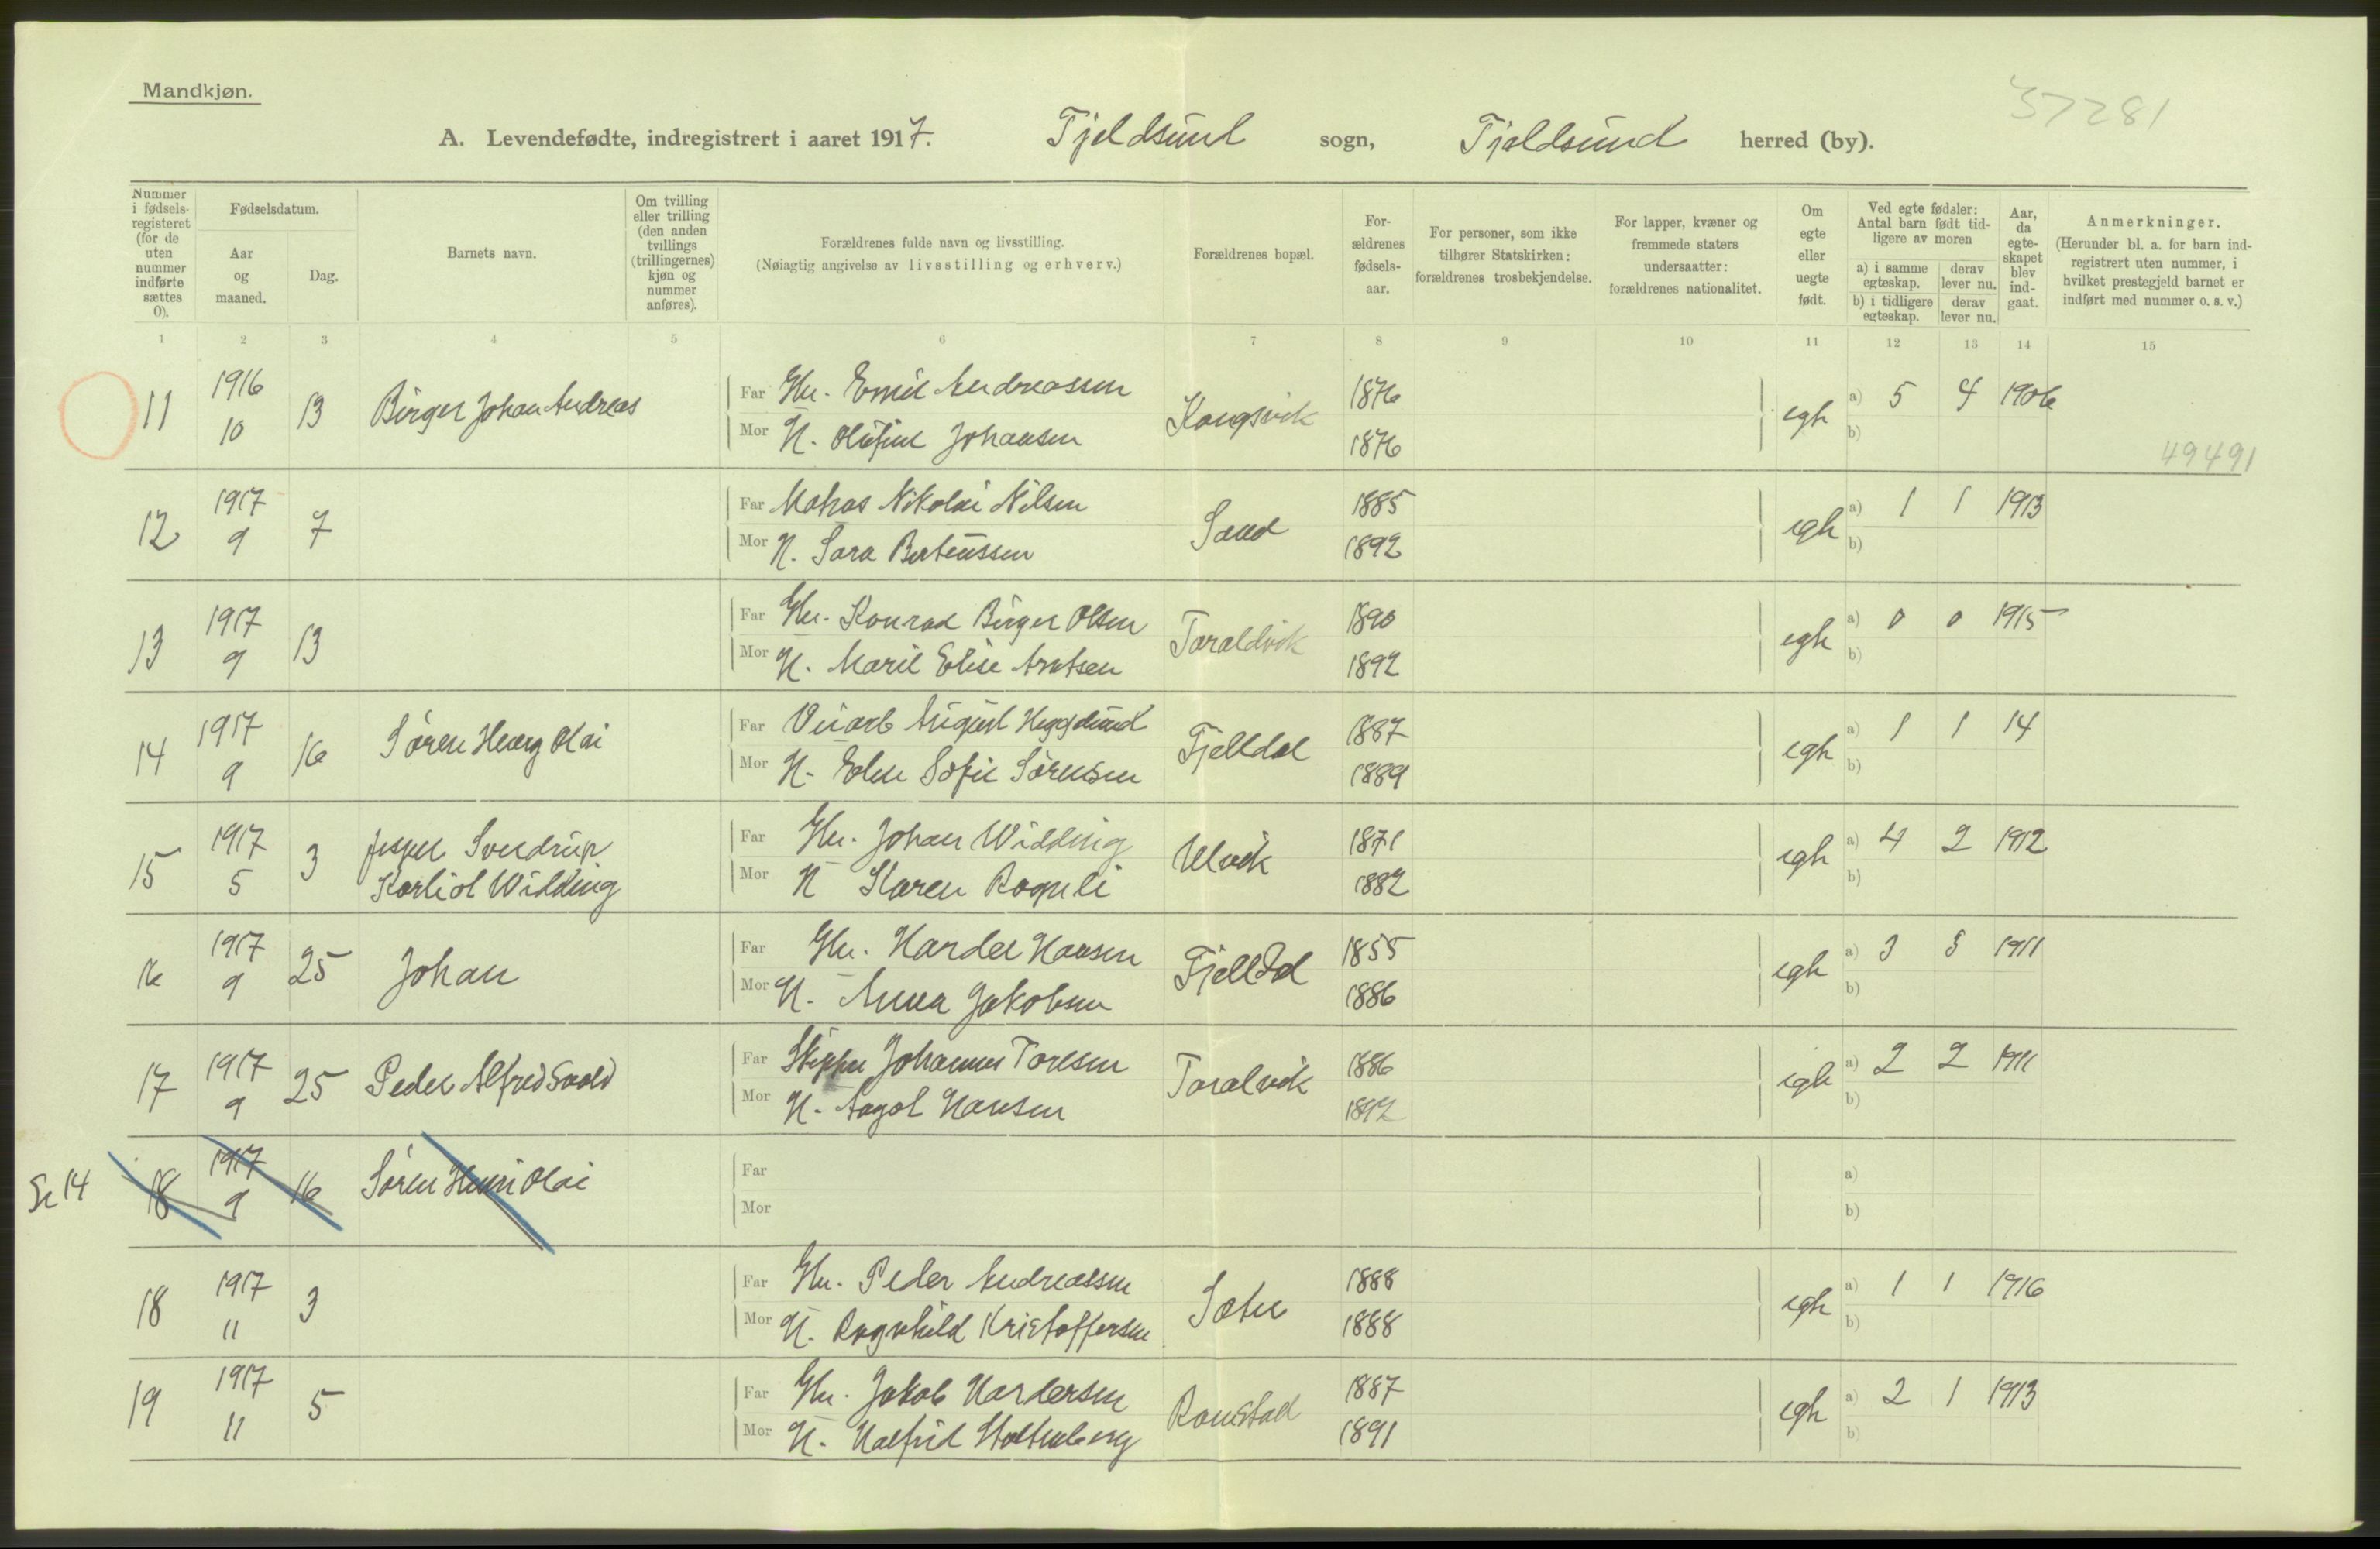 Mandkjøn.
37281
A. Levendefødte, indregistrert i aaret 1917. Tjeldsund sogn, Tjeldsund herred (by).
Nummer i fødsels-registeret (for de uten nummer indførte sættes 0).
Fødselsdatum.
Aar og maaned.
Dag.
Barnets navn.
Om tvilling eller trilling (den anden tvillings (trillingernes) kjøn og nummer anføres).
Forældrenes fulde navn og livsstilling.
(Nøiagtig angivelse av livsstilling og erhverv.)
Forældrenes bopæl.
For-ældrenes fødsels-aar.
For personer, som ikke tilhører Statskirken: forældrenes trosbekjendelse.
For lapper, kvæner og fremmede staters undersaatter: forældrenes nationalitet.
Om egte eller uegte født.
Ved egte fødsler: Antal barn født tid-ligere av moren
a) i samme egteskap.
derav lever nu.
b) i tidligere egteskap.
derav lever nu.
Aar, da egte-skapet blev ind-gaat.
Anmerkninger.
(Herunder bl. a. for barn ind-registrert uten nummer, i hvilket prestegjeld barnet er indført med nummer o. s. v.)
1 2 3 4 5 6 7 8 9 10 11 12 13 14 15
11 1916 10 13 Birger Johan Andreas
Far Gbr. Emil Andreassen Kongsvik 1876 egte a) 5 4 1906
Mor H. Olufine Johansen 1876 b)
49491
12 1917 9 7
Far Matias Nikolai Nilsen Sand 1885 egte a) 1 1 1913
Mor H. Sara Berteussen 1892 b)
13 1917 9 13
Far Gbr. Konrad Birger Olsen Taraldvik 1890 egte a) 0 0 1915
Mor H. Marie Elise Arntsen 1892 b)
14 1917 9 16 Søren Olai
Far August Tjelldal 1887 egte a) 1 1 14
Mor H. Sofie Sørensen 1889 b)
15 1917 5 3 Jesper Sverdrup
Widding
Far Gbr. Johan Widding Ulvik 1871 egte a) 4 2 1912
Mor H Karen 1882 b)
16 1917 9 25 Johan
Far Gbr. Harder Hansen Tjelldal 1855 egte a) 3 3 1911
Mor H. Anna Jakobsen 1886 b)
17 1917 9 25 Peder Alfred
Far Skipper Johannes Toresen Taralvik 1886 egte a) 2 2 1911
Mor H. Aagot Hansen 1892 b)
Se 14
18 1917 9 16 Søren Henri Olai
Far a)
Mor b)
18 1917 11 3
Far Gbr. Peder Andreassen Sæter 1888 egte a) 1 1 1916
Mor H. Ragnhild Kristoffersen 1888 b)
19 1917 11 5
Far Gbr. Jakob Hardersen Ramstad 1887 egte a) 2 1 1913
Mor H. Halfrid Stoltenberg 1891 b)